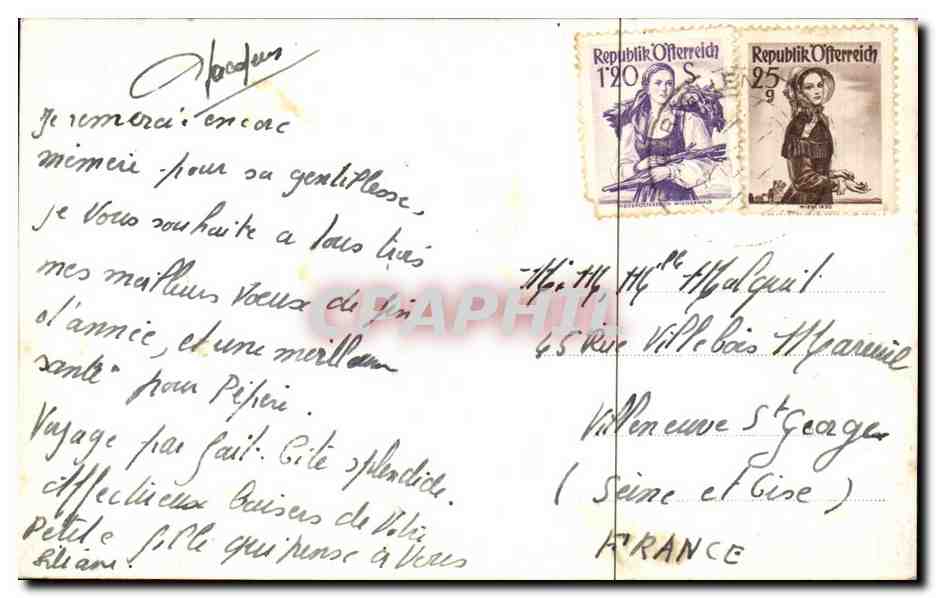 Jacques
Je remerci encore
mémère pour sa gentillesse,
je vous souhaite a tous trois
mes meilleurs voeux de fin
d'année, et une meilleur
santé pour Pépère.
Voyage parfait. Cité splendide.
Affectueux baisers de votre
Petite fille qui pense à vous
Liliane.
Republik Österreich
1'20 S
NIEDERÖSTERREICH WIENERWALD
Republik Österreich
25 g
WIEN 1850
M. M. Mlle Malquit
45 Rue Villebois Mareuil
Villeneuve St Georges
(Seine et Oise)
FRANCE
CPAPHIL